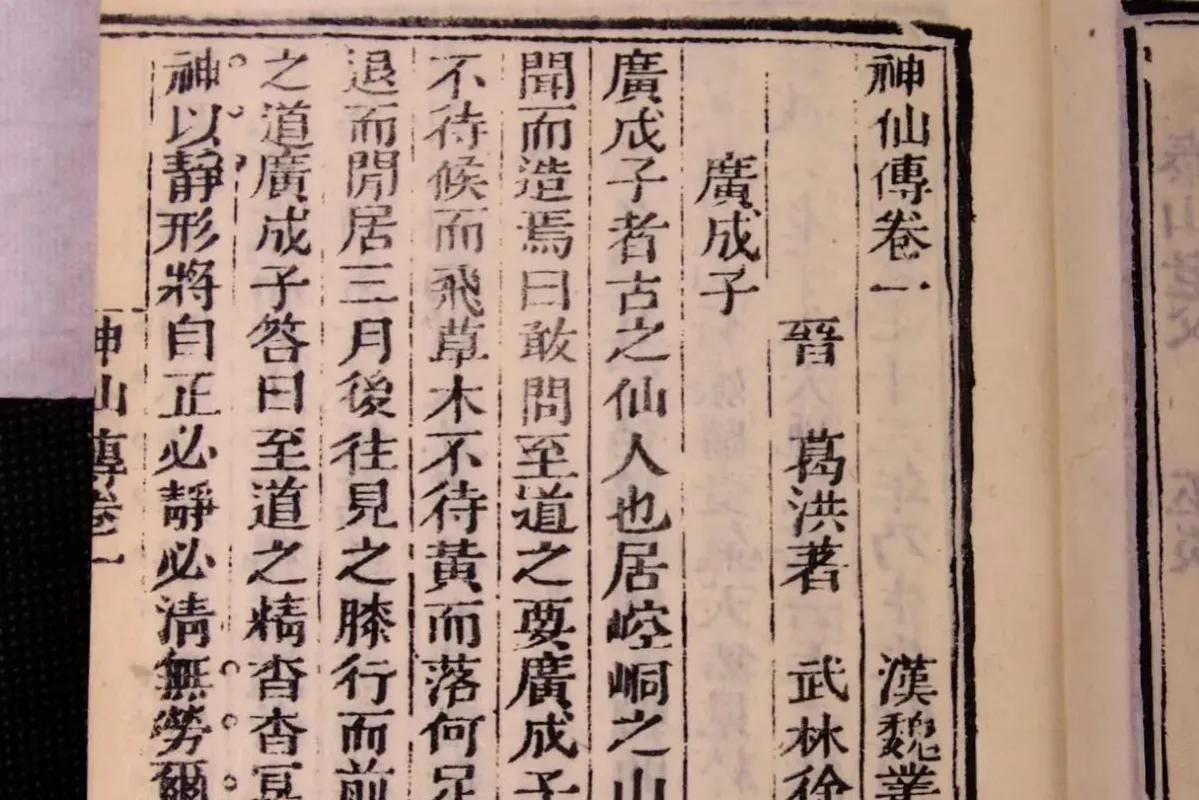 神仙傳卷一 漢魏叢
晉 葛洪著 武林徐
廣成子
廣成子者古之仙人也居崆峒之山
聞而造焉曰敢問至道之要廣成子
不待候而飛草木不待黃而落何足
退而閒居三月後往見之膝行而前
之道廣成子答曰至道之精杳杳冥
神以靜形將自正必靜必清無勞爾
神仙傳卷一